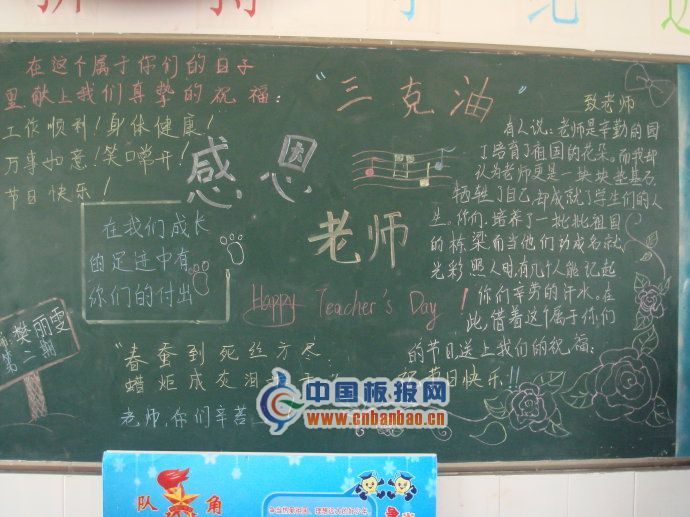 在这个属于你们的日子
里献上我们真挚的祝福：
工作顺利！身体健康！
万事如意！笑口常开！
节日快乐！
"三克油"
感恩
老师
在我们成长
的足迹中有
你们的付出
Happy Teacher's Day !
樊丽雯
第二期
"春蚕到死丝方尽
蜡炬成灰泪
老师,你们辛苦
致老师
有人说：老师是辛勤的园
丁培育了祖国的花朵。而我却
认为老师更是一块块垫基石,
牺牲了自己,却成就了学生们的人
生,你们,培养了一批批祖国
的栋梁而当他们功成名就,
光彩照人时,有几个人能记起
你们辛劳的汗水。在
此,借着这个属于你们
的节日送上我们的祝福：
节日快乐!!
中国板报网
www.cnbanbao.cn
队角